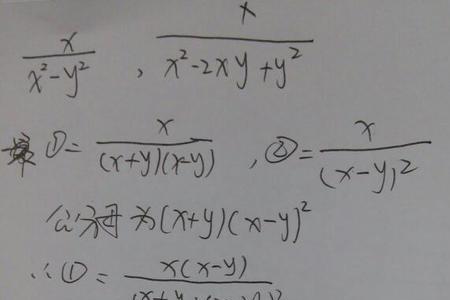 x/(x²-y²) , x/(x²-2xy+y²)
①= x/((x+y)(x-y)) , ②= x/(x-y)²
公分母为(x+y)(x-y)²
∴①= x(x-y)/